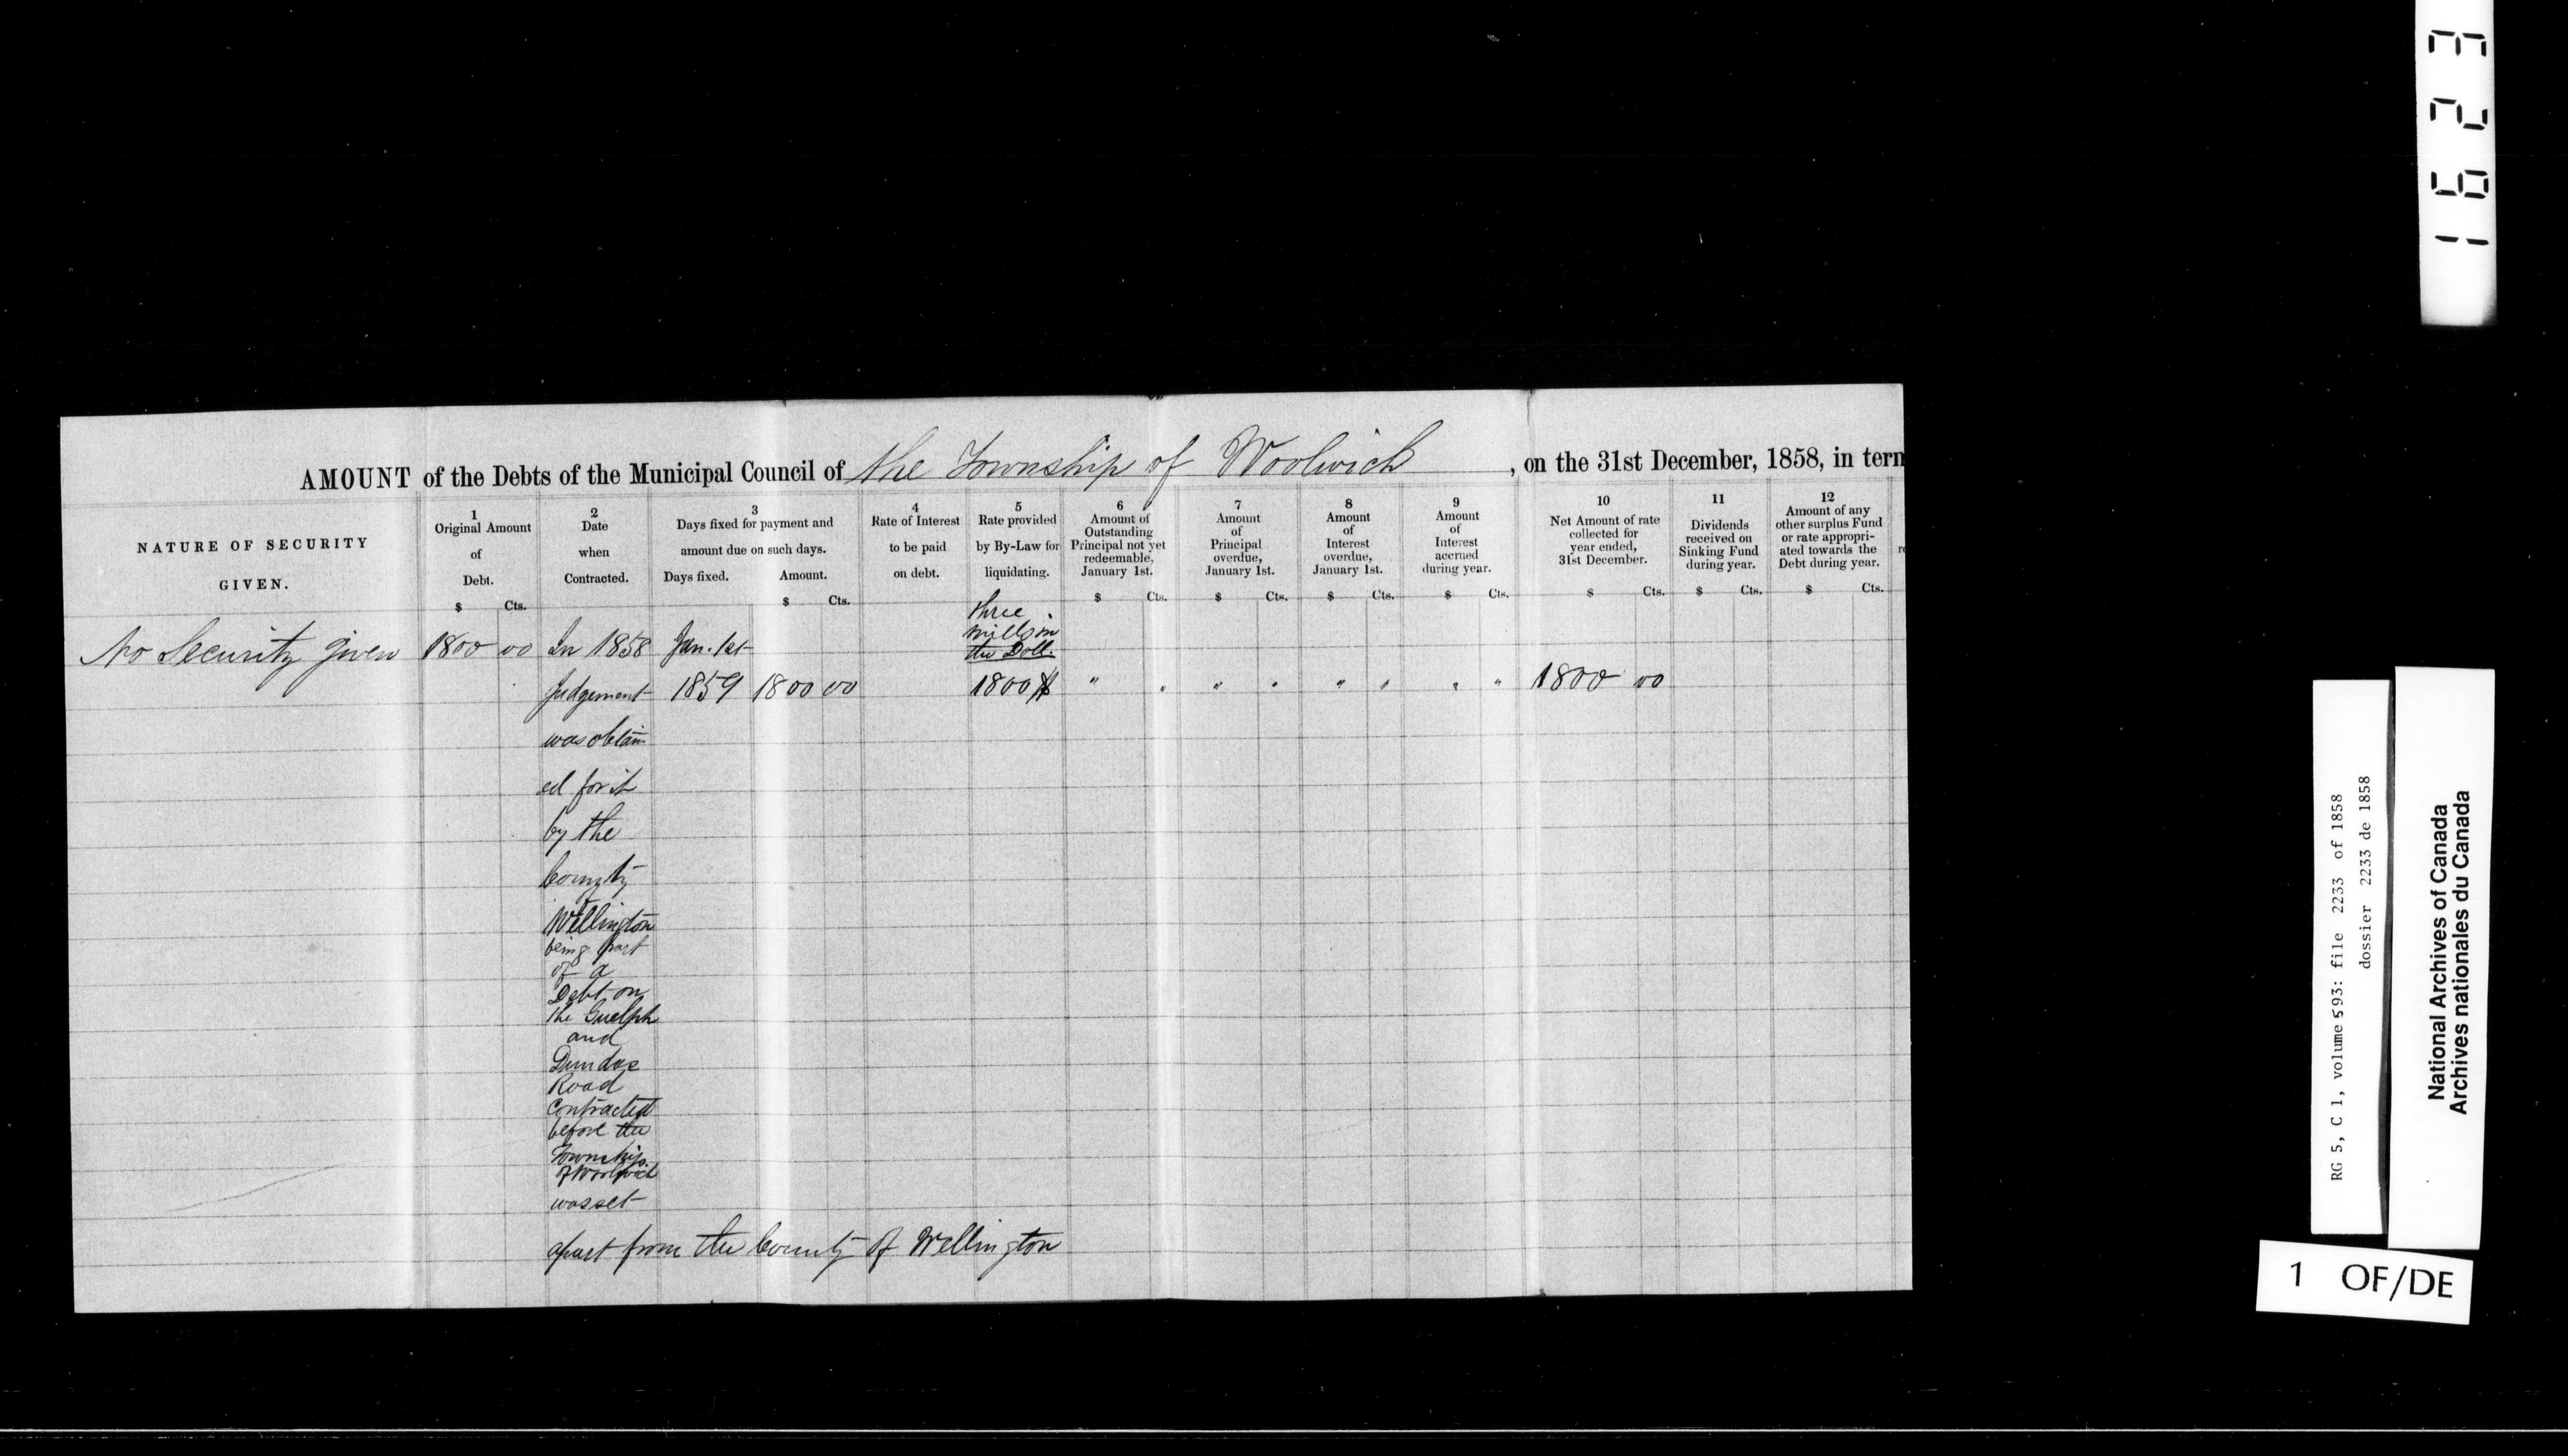 AMOUNT of the Debts of the Municipal Council of the Township of Woolwich, on the 31st December, 1858, in term
NATURE OF SECURITY
GIVEN.
1
Original Amount
of
Debt.
$ Cts.
2
Date
when
Contracted.
3
Days fixed for payment and
amount due on such days.
Days fixed. Amount.
$ Cts.
4
Rate of Interest
to be paid
on debt.
5
Rate provided
by By-Law for
liquidating.
6
Amount of
Outstanding
Principal not yet
redeemable,
January 1st.
$ Cts.
7
Amount
of
Principal
overdue,
January 1st.
$ Cts.
8
Amount
of
Interest
overdue,
January 1st.
$ Cts.
9
Amount
of
Interest
accrued
during year.
$ Cts.
10
Net Amount of rate
collected for
year ended,
31st December.
$ Cts.
11
Dividends
received on
Sinking Fund
during year.
$ Cts.
12
Amount of any
other surplus Fund
or rate appropri-
ated towards the
Debt during year.
$ Cts.
re
No Security given
1800 00
In 1858
Judgement
was obtain
ed for it
by the
County
Wellington
being part
of a
Debt on
the Guelph
and
Dundas
Road
contracted
before the
Township
of Woolwich
was set
apart from the County of Wellington
Jan. 1st
1859 1800 00
three
mills in
the Doll.
1800 $
" " " " " " " "
1800 00
1623
RG 5, C 1, volume 593: file 2233 of 1858
dossier 2233 de 1858
National Archives of Canada
Archives nationales du Canada
1 OF/DE